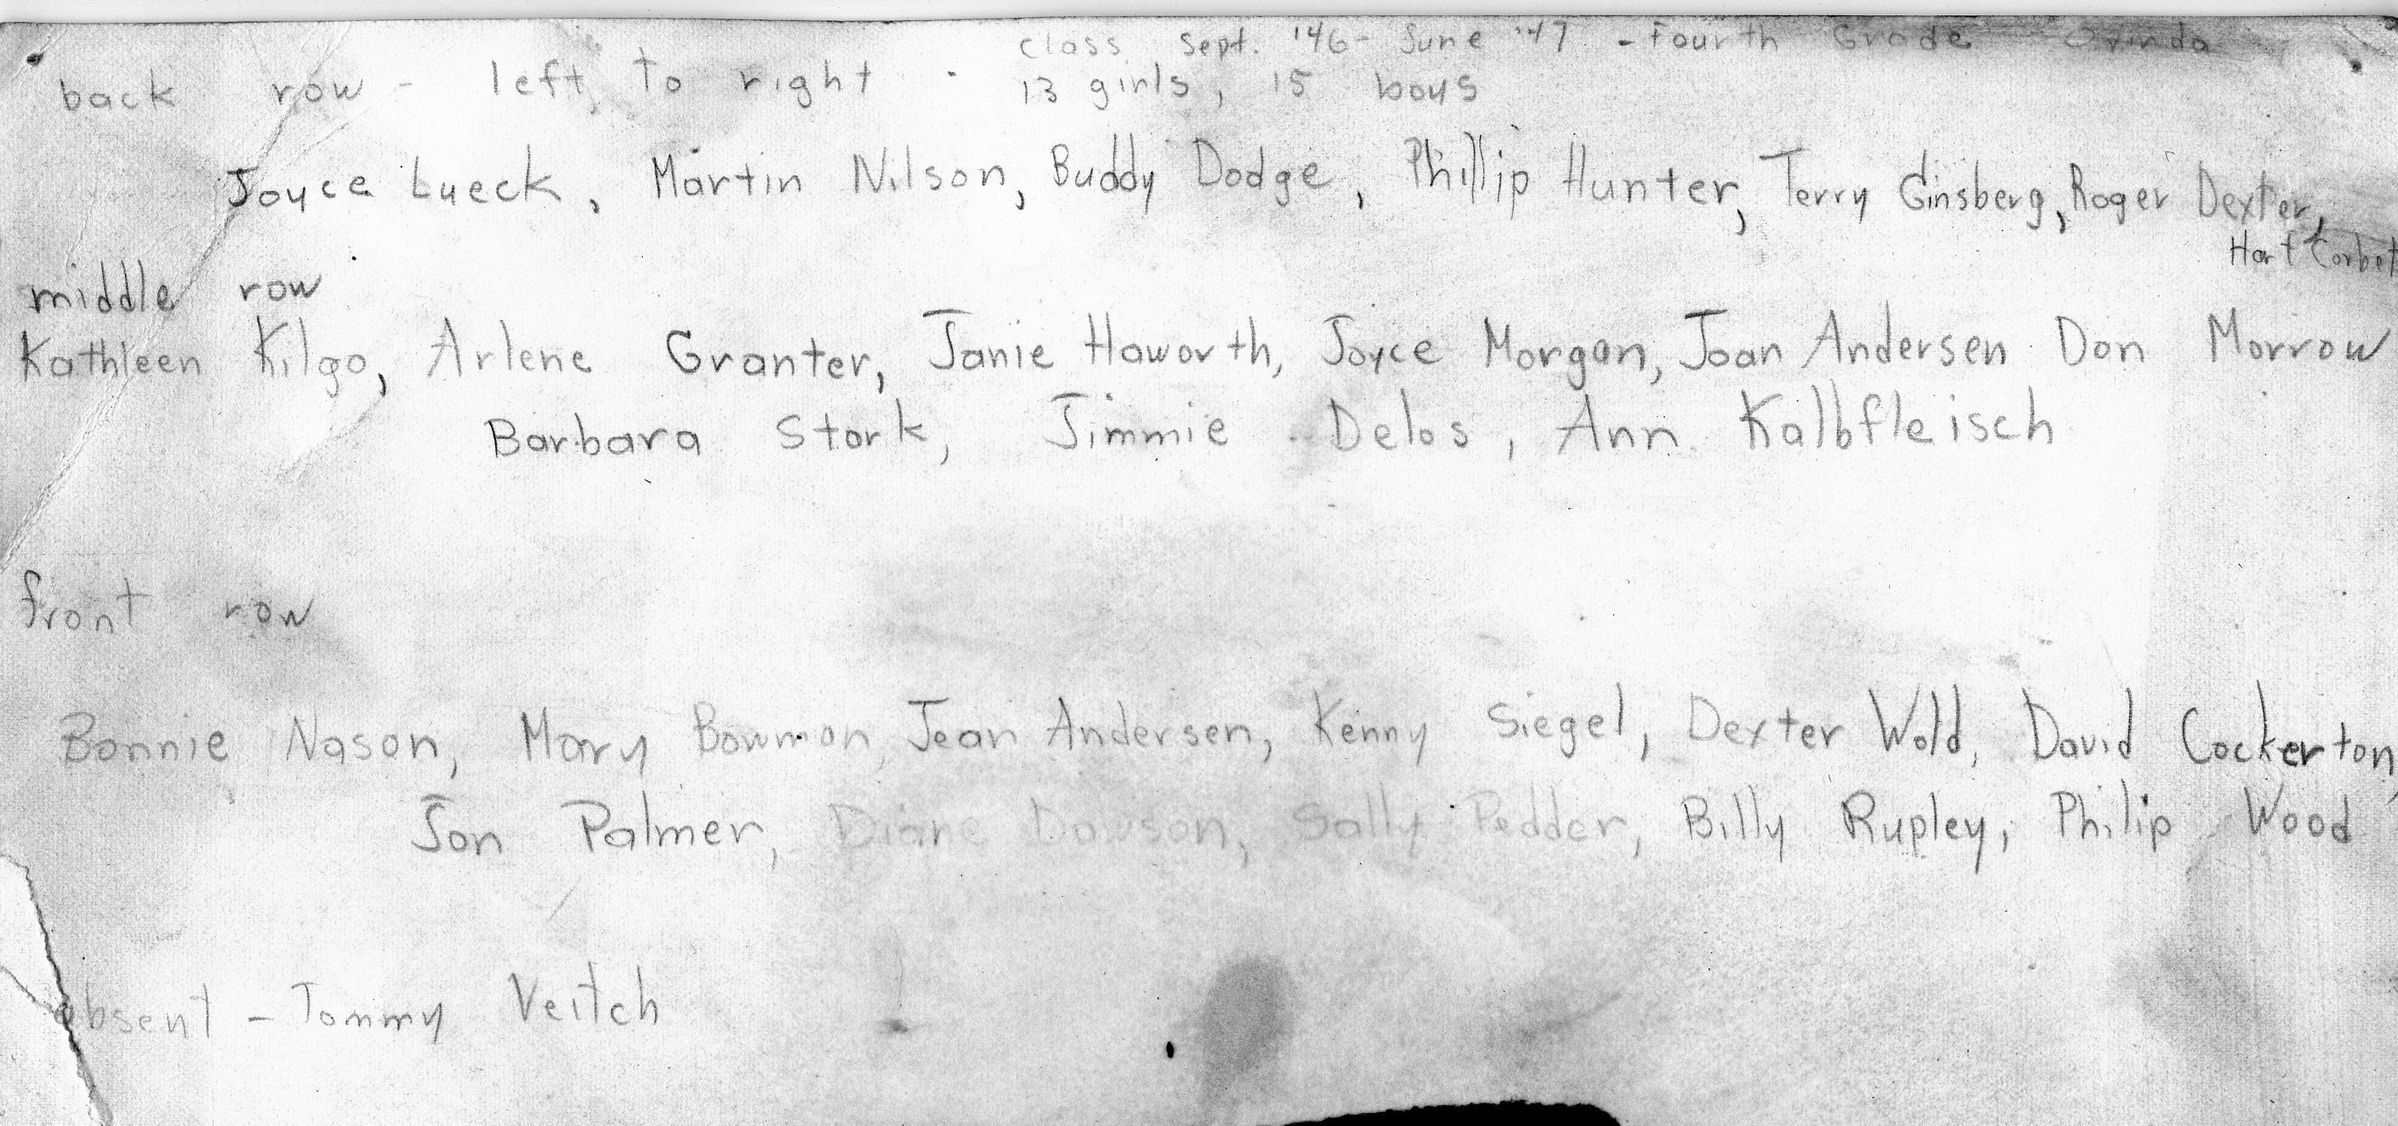 class Sept. '46- June '47 - Fourth Grade Orinda
back row - left to right - 13 girls, 15 boys
Joyce Lueck, Martin Nilson, Buddy Dodge, Phillip Hunter, Terry Ginsberg, Roger Dexter,
Hart Corbet
middle row
Kathleen Kilgo, Arlene Granter, Janie Haworth, Joyce Morgan, Joan Andersen Don Morrow
Barbara Stork, Jimmie Delos, Ann Kalbfleisch
front row
Bonnie Nason, Mary Bowman, Jean Andersen, Kenny Siegel, Dexter Wold, David Cockerton,
Jon Palmer, Diane Dawson, Sally Pedder, Billy Rupley, Philip Wood
absent - Tommy Veitch